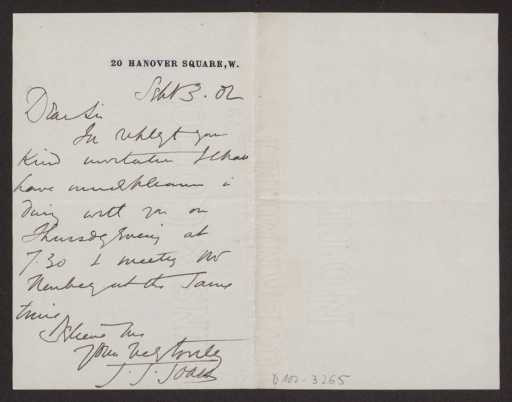 20 HANOVER SQUARE, W.
Sept 3. 02
Dear Sir
In reply to your
kind invitation I shall
have much pleasure in
dining with you on
Thursday Evening at
7.30 & meeting Mr
at the same
time
Believe me
Yours very truly
J. J. Joass
D102-3265